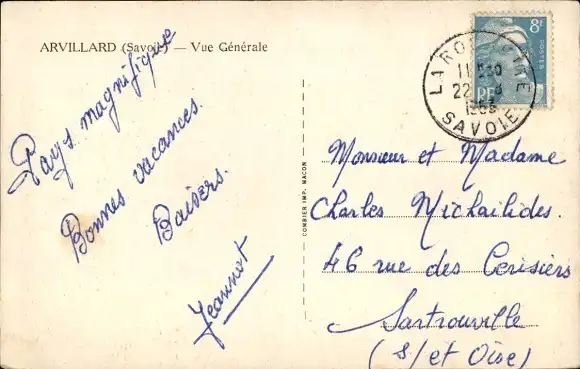 ARVILLARD (Savoie) — Vue Générale
Pays magnifique
Bonnes vacances.
Baisers.
Jeannot
COMBIER IMP. MACON
8F
POSTES
RF
LA ROCHETTE
22
SAVOIE
Monsieur et Madame
Charles Michailidès.
46 rue des Cerisiers
Sartrouville
(S/et Oise)